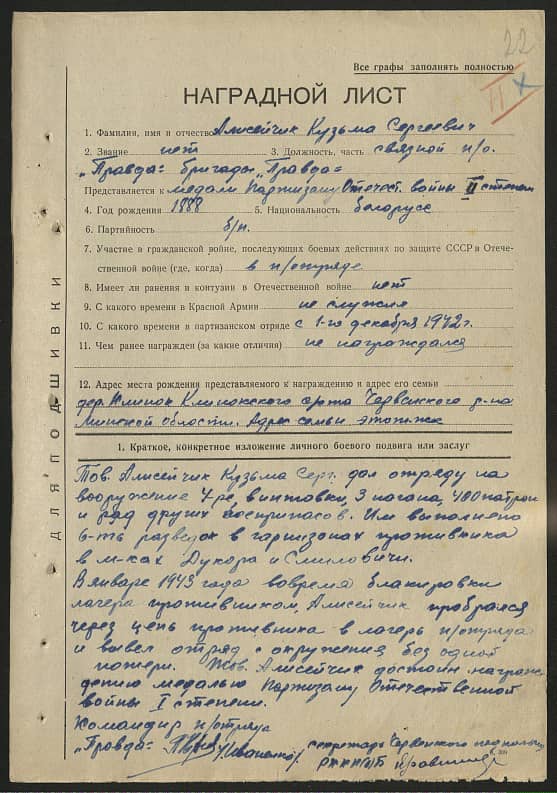 22
Все графы заполнять полностью
II
НАГРАДНОЙ ЛИСТ
1. Фамилия, имя и отчество Алисейчик Кузьма Сергеевич
2. Звание нет 3. Должность, часть связной п/о.
„Правда" бригады „Правда"
Представляется к медали Партизану Отечест. войны II степени
4. Год рождения 1888 5. Национальность белорусс
6. Партийность б/п.
7. Участие в гражданской войне, последующих боевых действиях по защите СССР и Отече-
ственной войне (где, когда) в п/отряде
8. Имеет ли ранения и контузии в Отечественной войне нет
9. С какого времени в Красной Армии не служил
10. С какого времени в партизанском отряде с 1-го декабря 1942 г.
11. Чем ранее награжден (за какие отличия) не награждался
12. Адрес места рождения представляемого к награждению и адрес его семьи
дер. Клинок Клинокского с/совета Червенского р-на
Минской области. Адрес семьи этот же
1. Краткое, конкретное изложение личного боевого подвига или заслуг
Тов. Алисейчик Кузьма Серг. дал отряду на
вооружение 4-ре винтовки, 3 нагана, 400 патрон
и ряд других боеприпасов. Им выполнено
6-ть разведок в гарнизонах противника
в м-ках Дукора и Смиловичи.
В январе 1943 года вовремя блакировки
лагеря противником, Алисейчик пробрался
через цепь противника в лагерь п/отряда
и вывел отряд с окружения без одной
потери. Тов. Алисейчик достоин награж-
дению медалью Партизану Отечественной
войны I степени.
Командир п/отряда
„Правда" /Иваненко/ секретарь Червенского подпольн.
РККП(б)Б
ДЛЯ ПОДШИВКИ